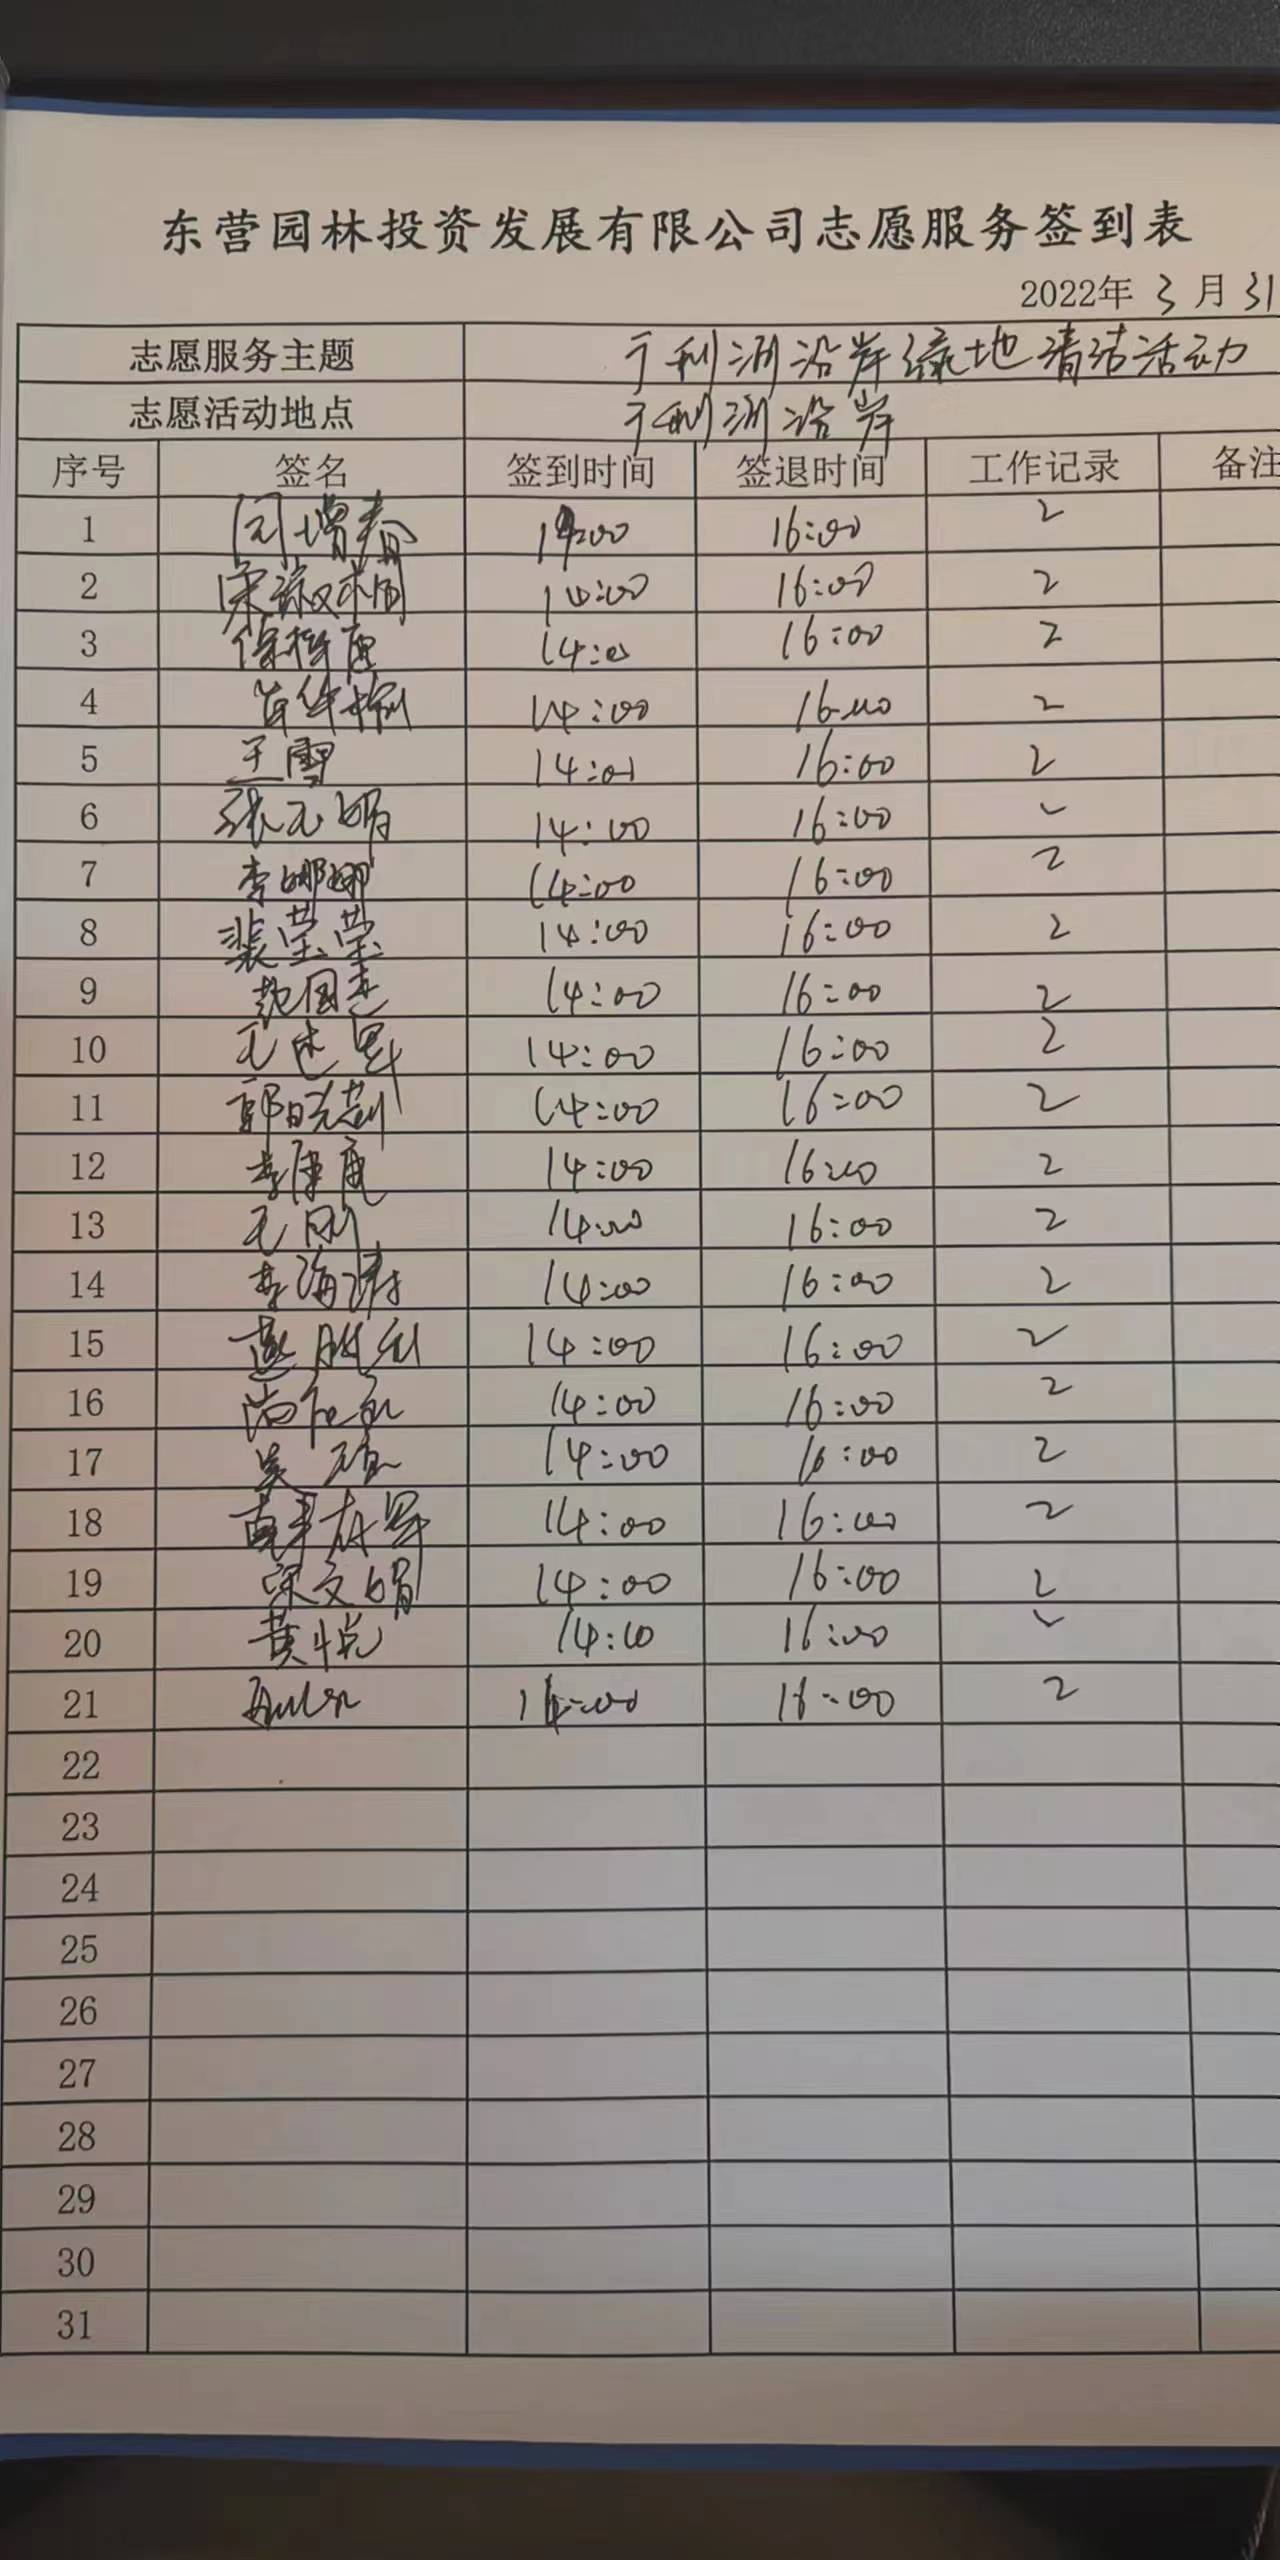 东营园林投资发展有限公司志愿服务签到表
2022年 3 月 31
志愿服务主题 广利河沿岸绿地清洁活动
志愿活动地点 广利河沿岸
序号 签名 签到时间 签退时间 工作记录 备注
1 闫增春 14:00 16:00 2
2 14:00 16:00 2
3 16:00 2
4 14:00 16:00 2
5 王雪 16:00 2
6 张元娟 14:00 16:00 2
7 李娜娜 14:00 16:00 2
8 裴莹莹 14:00 16:00 2
9 14:00 16:00 2
10 14:00 16:00 2
11 郭晓莉 14:00 16:00 2
12 李康康 14:00 16:00 2
13 王刚 14:00 16:00 2
14 李海涛 14:00 16:00 2
15 燕胜利 14:00 16:00 2
16 14:00 16:00 2
17 14:00 16:00 2
18 14:00 16:00 2
19 宋文娟 14:00 16:00 2
20 黄悦 16:00 2
21 16:00 2
22
23
24
25
26
27
28
29
30
31